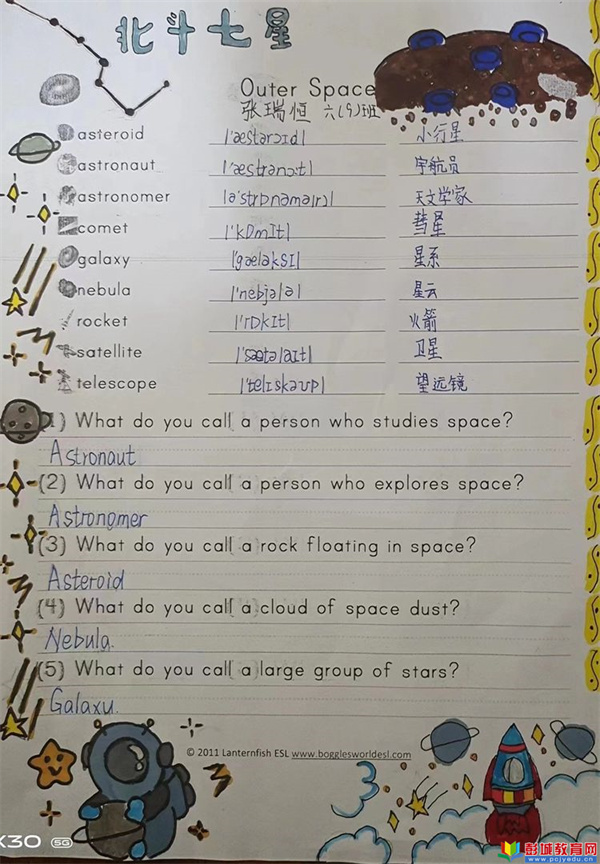 北斗七星
Outer Space
张瑞恒 六(9)班
asteroid |'æstərɔɪd| 小行星
astronaut |'æstrənɔ:t| 宇航员
astronomer |ə'strɒnəmə(r)| 天文学家
comet |'kɒmɪt| 彗星
galaxy |'gæləksɪ| 星系
nebula |'nebjələ| 星云
rocket |'rɒkɪt| 火箭
satellite |'sætəlaɪt| 卫星
telescope |'telɪskəʊp| 望远镜
(1) What do you call a person who studies space?
Astronaut
(2) What do you call a person who explores space?
Astronomer
(3) What do you call a rock floating in space?
Asteroid
(4) What do you call a cloud of space dust?
Nebula.
(5) What do you call a large group of stars?
Galaxy.
© 2011 Lanternfish ESL www.bogglesworldesl.com
K30 5G
彭城教育网
www.pcjyedu.cn